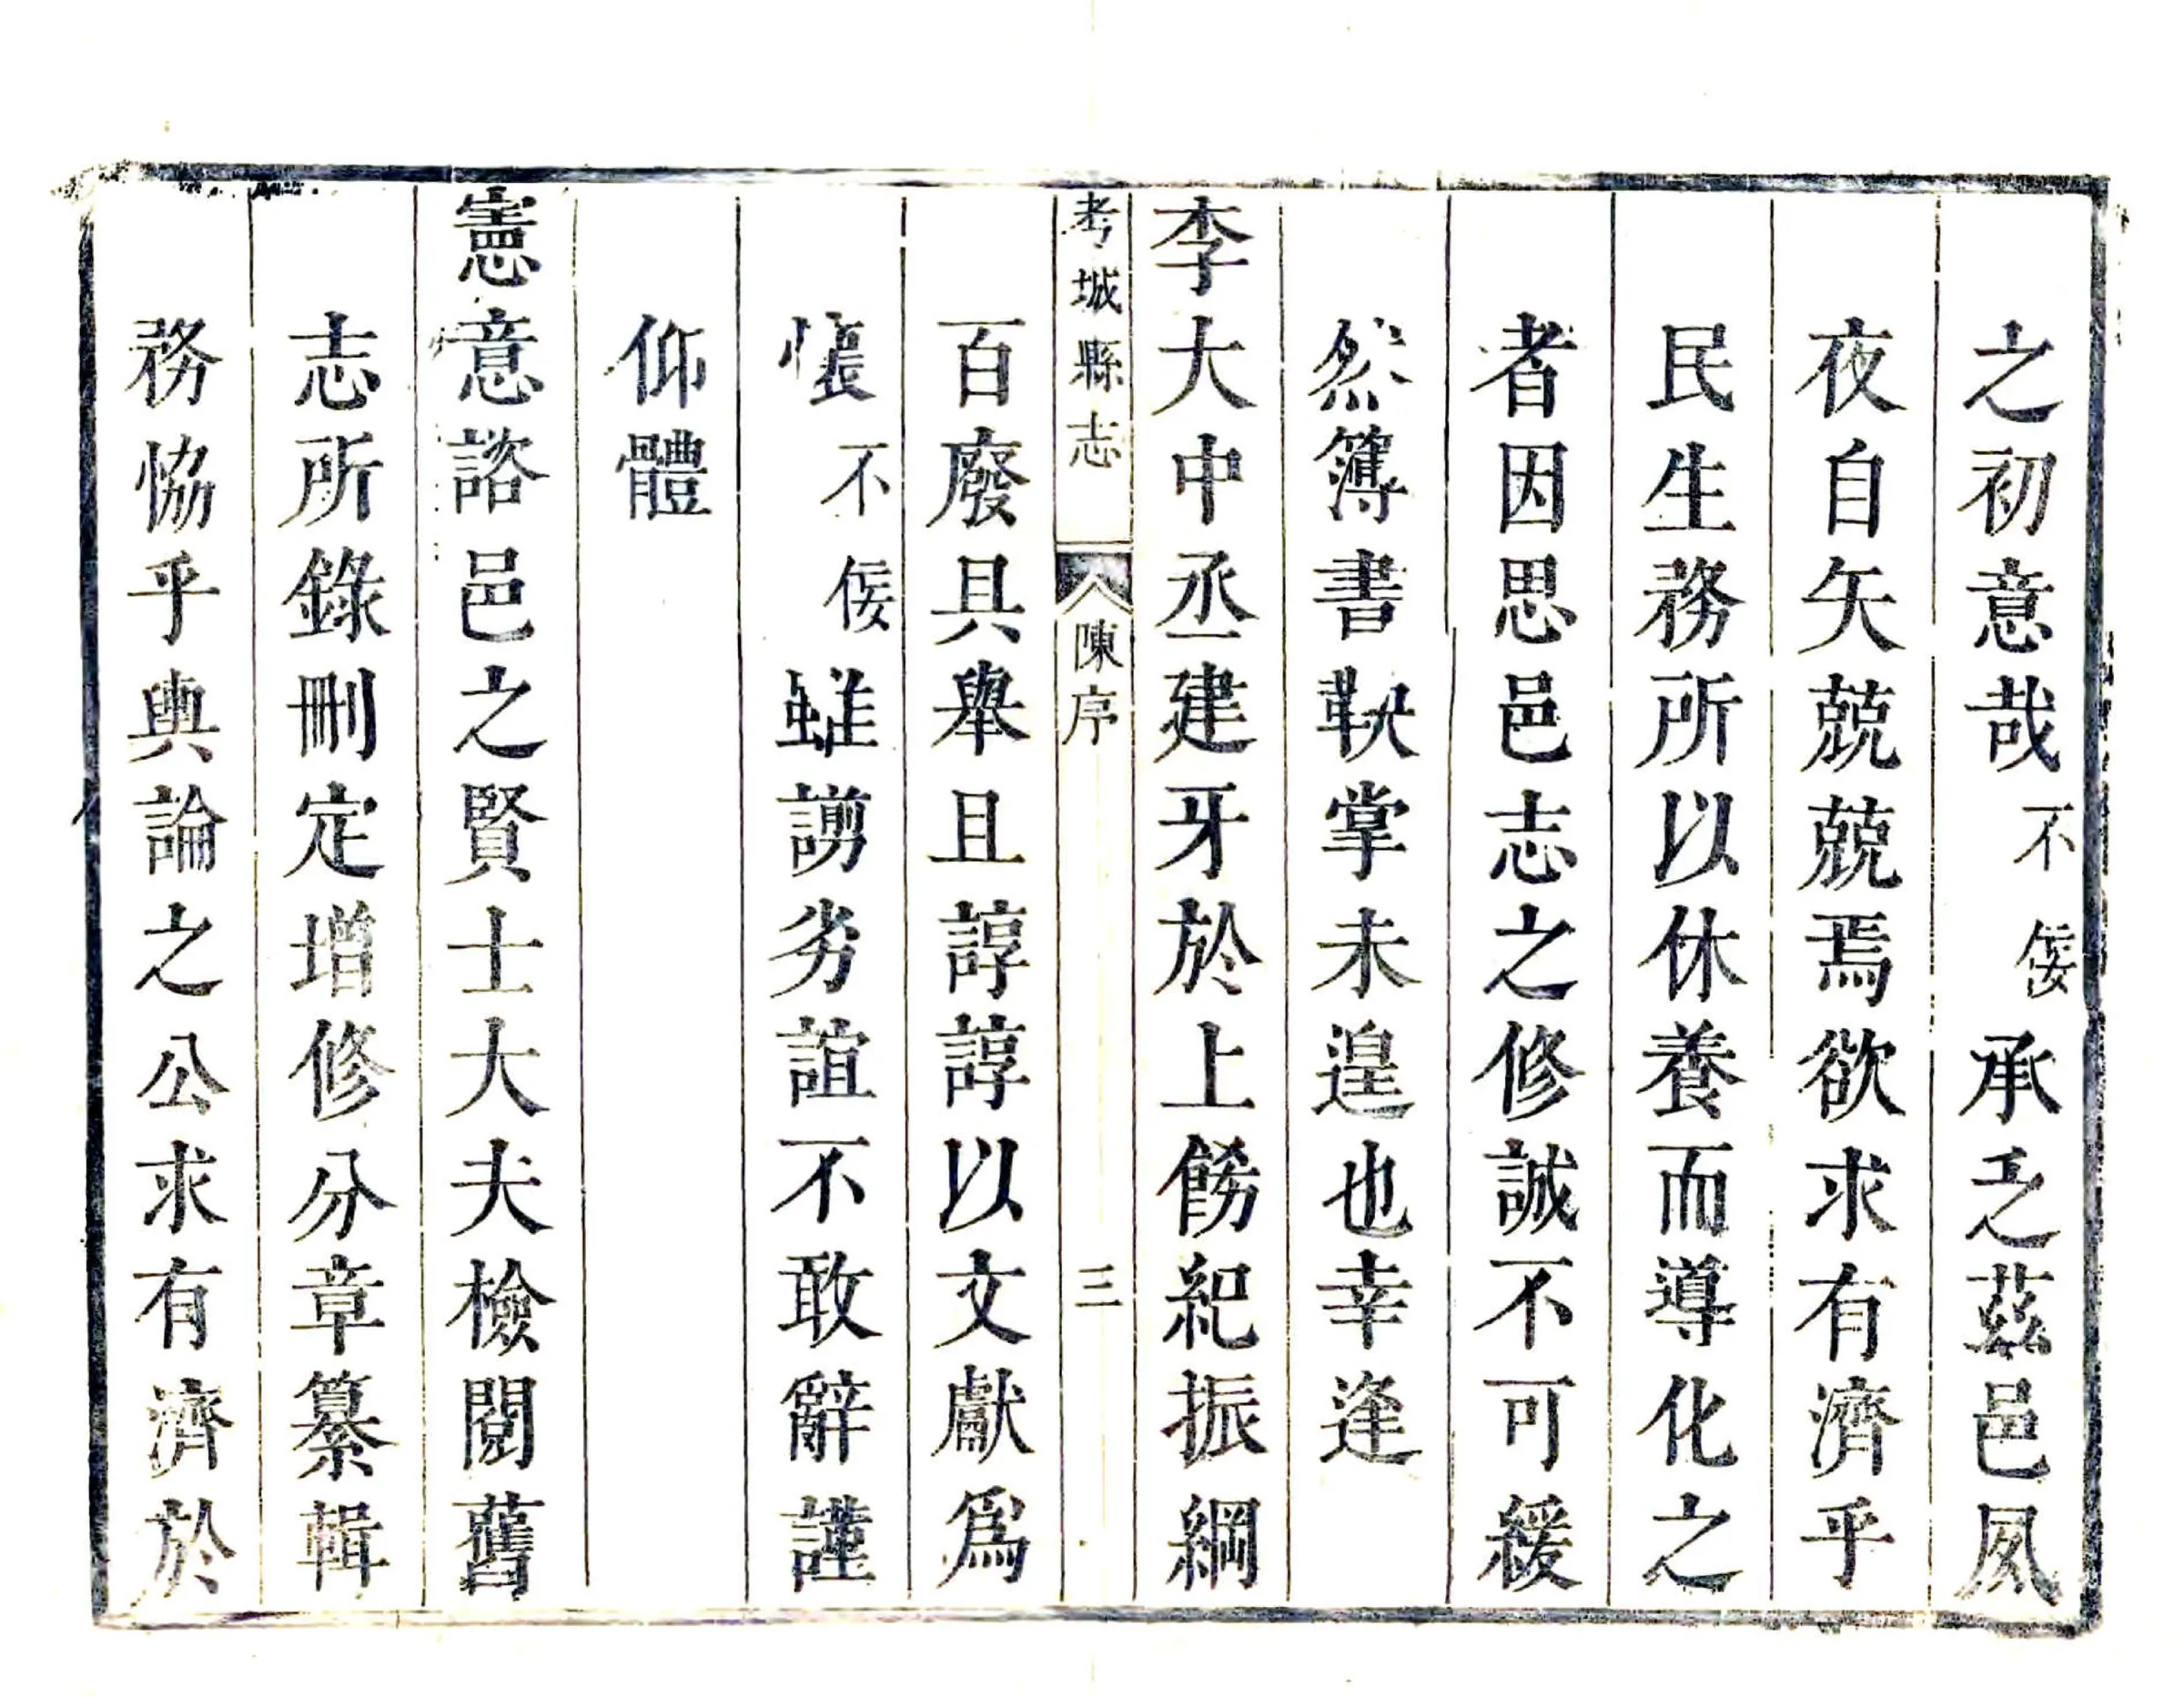 之初意哉不佞承乏茲邑夙
夜自矢兢兢焉欲求有濟乎
民生務所以休養而導化之
者因思邑志之修誠不可緩
然簿書鞅掌未遑也幸逢
李大中丞建牙於上飭紀振綱
考城縣志
陳序
三
百廢具舉且諄諄以文獻爲
懷不佞雖謭劣誼不敢辭謹
仰體
憲意諮邑之賢士大夫檢閱舊
志所錄刪定增修分章纂輯
務恊乎輿論之公求有濟於